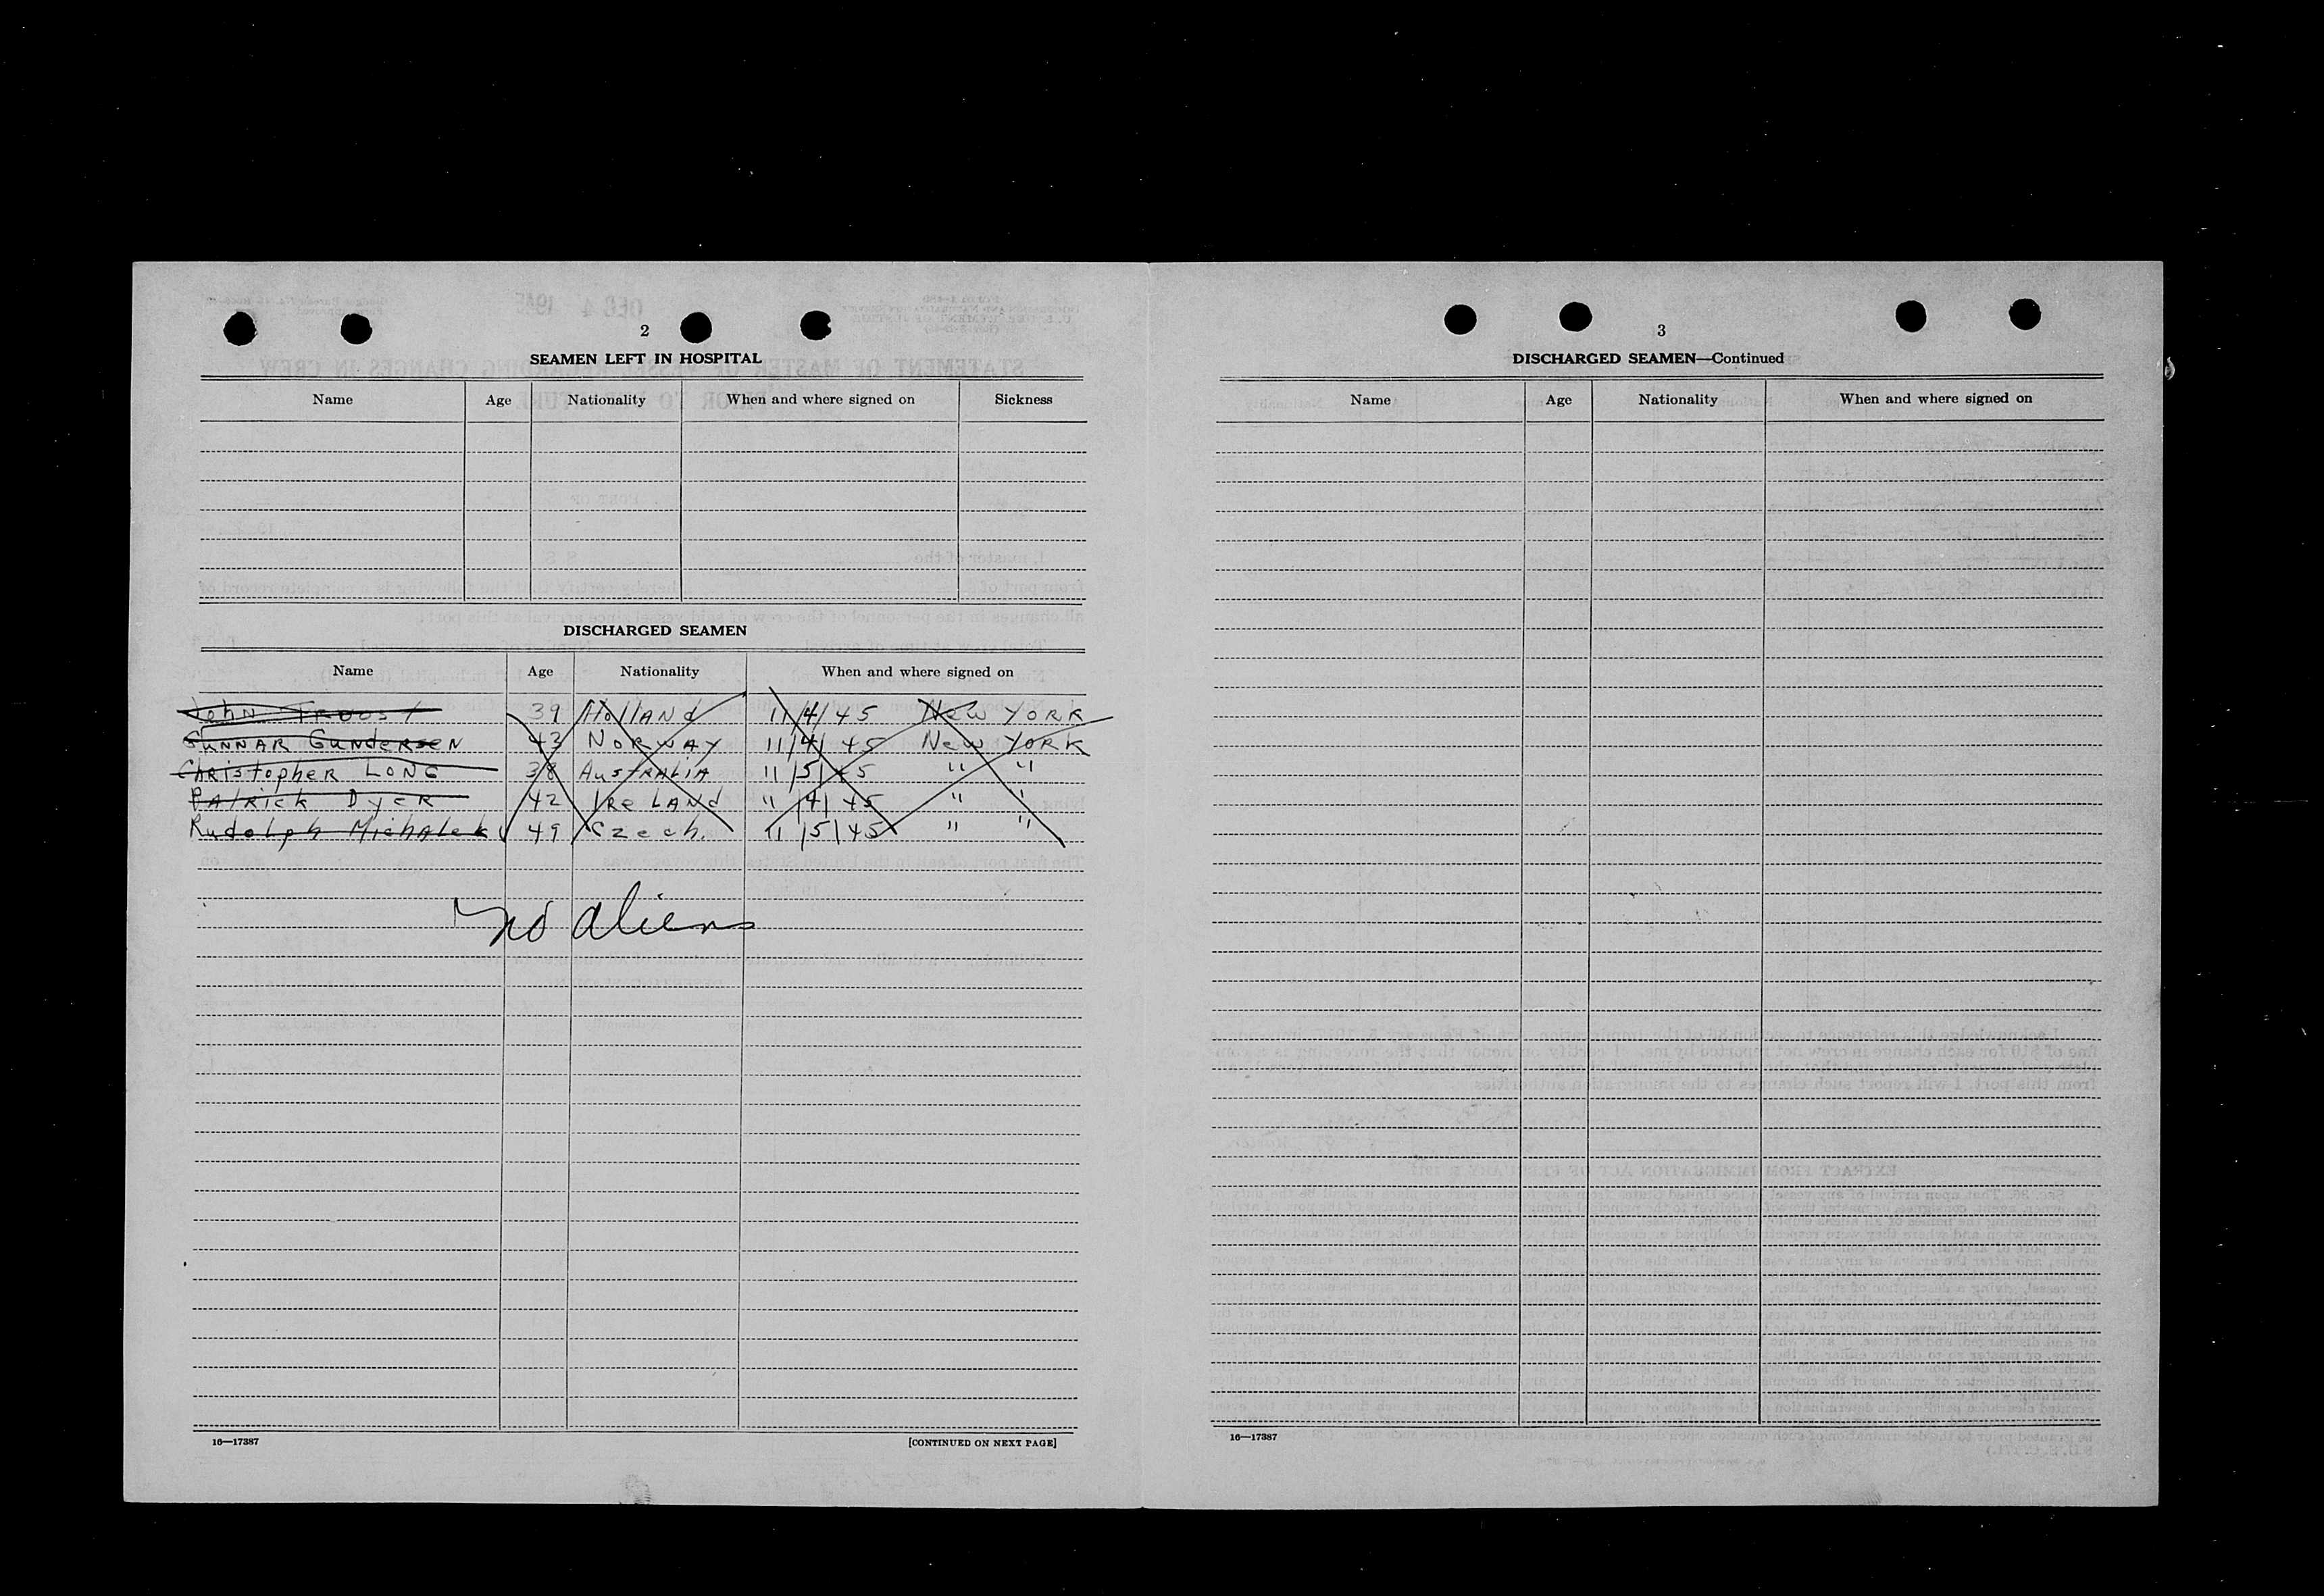 2
SEAMEN LEFT IN HOSPITAL
Name Age Nationality When and where signed on Sickness
DISCHARGED SEAMEN
Name Age Nationality When and where signed on
John Troost 39 Holland 11/4/45 New York
Gunnar Gundersen 43 Norway 11/4/45 New York
Christopher Long 38 Australia 11/5/45 " "
Patrick Dyer 42 Ireland " /4/45 " "
Rudolph Michalek 49 Czech. 11/5/45 " "
no aliens
16—17387 [CONTINUED ON NEXT PAGE]
3
DISCHARGED SEAMEN—Continued
Name Age Nationality When and where signed on
16—17387